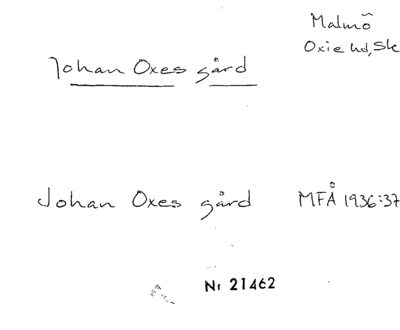 Malmö
Oxie hd, Sk
Johan Oxes gård
Johan Oxes gård MFÅ 1936:37
Nr 21462